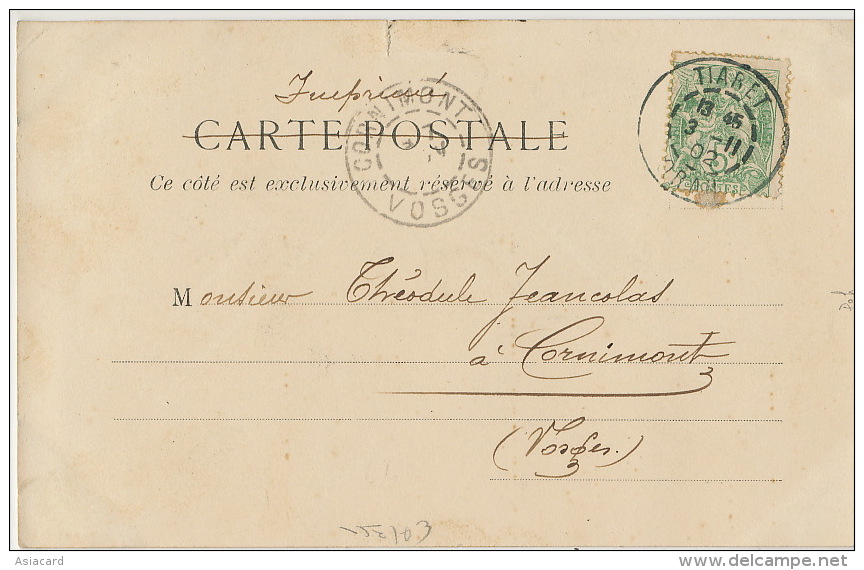 Imprimé
CARTE POSTALE
Ce côté est exclusivement réservé à l'adresse
CORNIMONT
VOSGES
TIARET
13 45
3 II
02
POSTES
Monsieur Théodule Jeancolas
à Cornimont
(Vosges)
Asiacard
delcampe.net